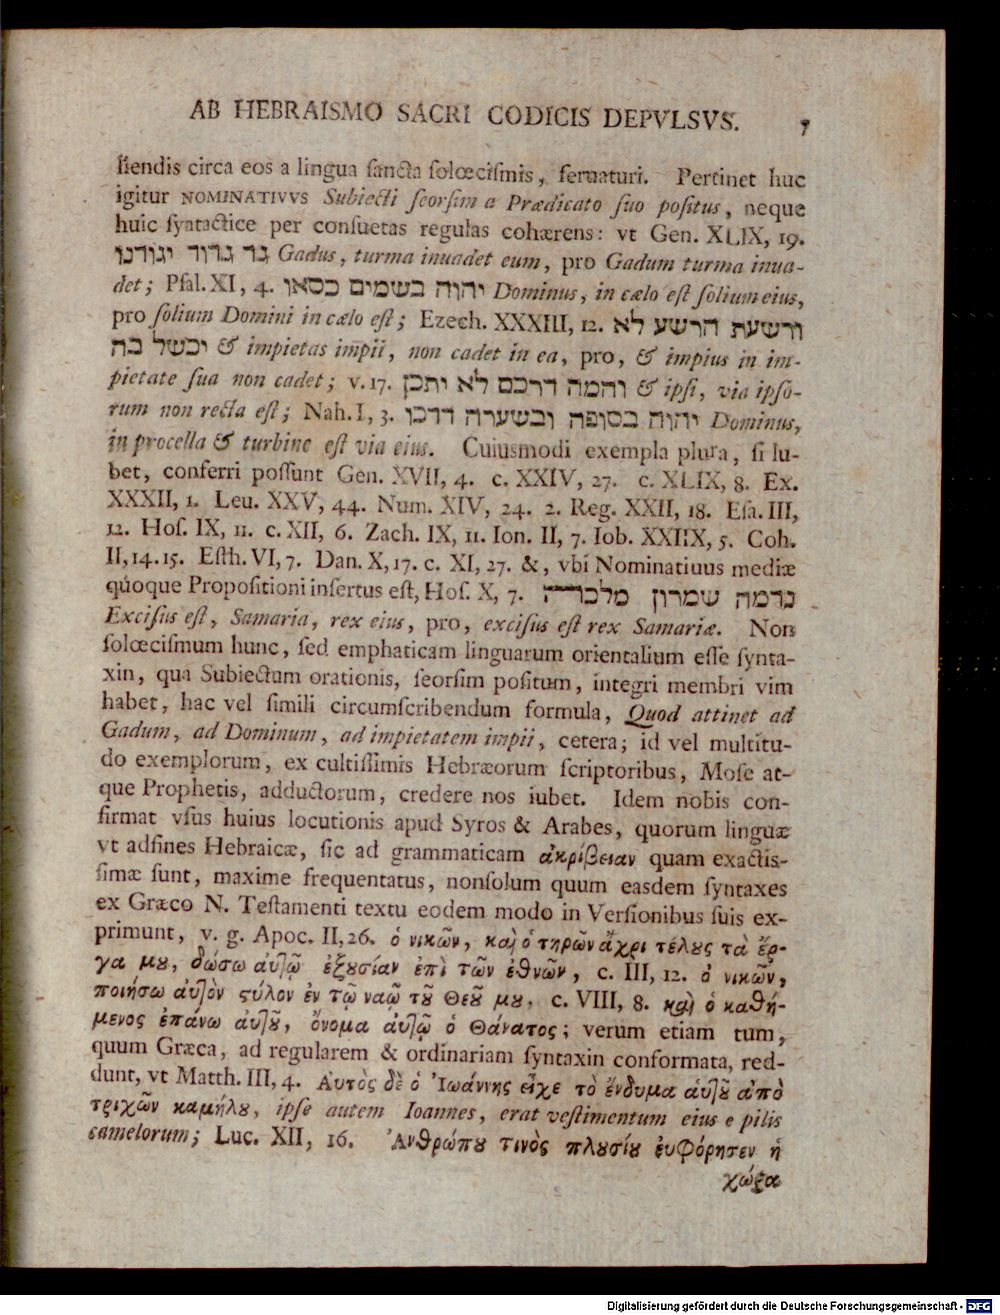 AB HEBRAISMO SACRI CODICIS DEPVLSVS. 7
ſiendis circa eos a lingua ſancta ſolœciſmis, ſeruaturi. Pertinet huc
igitur NOMINATIVVS Subiecti ſeorſim a Prædicato ſuo poſitus, neque
huic ſyntactice per conſuetas regulas cohærens: vt Gen. XLIX, 19.
גד גדוד יגודנו Gadus, turma inuadet eum, pro Gadum turma inua-
det; Pſal. XI, 4. יהוה בשמים כסאו Dominus, in cælo eſt ſolium eius,
pro ſolium Domini in cælo eſt; Ezech. XXXIII, 12. ורשעת הרשע לא
יכשל בה & impietas impii, non cadet in ea, pro, & impius in im-
pietate ſua non cadet; v. 17. והמה דרכם לא יתכן & ipſi, via ipſo-
rum non recta eſt; Nah. I, 3. יהוה בסופה ובשערה דרכו Dominus,
in procella & turbine eſt via eius. Cuiusmodi exempla plura, ſi lu-
bet, conferri poſſunt Gen. XVII, 4. c. XXIV, 27. c. XLIX, 8. Ex.
XXXII, 1. Leu. XXV, 44. Num. XIV, 24. 2. Reg. XXII, 18. Eſa. III,
12. Hoſ. IX, 11. c. XII, 6. Zach. IX, 11. Ion. II, 7. Iob. XXIIX, 5. Coh.
II, 14. 15. Eſth. VI, 7. Dan. X, 17. c. XI, 27. &, vbi Nominatiuus mediæ
quoque Propoſitioni inſertus eſt, Hoſ. X, 7. נדמה שמרון מלכה
Exciſus eſt, Samaria, rex eius, pro, exciſus eſt rex Samariæ. Non
ſolœciſmum hunc, ſed emphaticam linguarum orientalium eſſe ſynta-
xin, qua Subiectum orationis, ſeorſim poſitum, integri membri vim
habet, hac vel ſimili circumſcribendum formula, Quod attinet ad
Gadum, ad Dominum, ad impietatem impii, cetera; id vel multitu-
do exemplorum, ex cultiſſimis Hebræorum ſcriptoribus, Moſe at-
que Prophetis, adductorum, credere nos iubet. Idem nobis con-
firmat vſus huius locutionis apud Syros & Arabes, quorum linguæ
vt adfines Hebraicæ, ſic ad grammaticam ἀκρίβειαν quam exactis-
ſimæ ſunt, maxime frequentatus, nonſolum quum easdem ſyntaxes
ex Græco N. Teſtamenti textu eodem modo in Verſionibus ſuis ex-
primunt, v. g. Apoc. II, 26. ὁ νικῶν, καὶ ὁ τηρῶν ἄχρι τέλους τὰ ἔρ-
γα μου, δώσω αὐτῷ ἐξουσίαν ἐπὶ τῶν ἐθνῶν, c. III, 12. ὁ νικῶν,
ποιήσω αὐτὸν στύλον ἐν τῷ ναῷ τοῦ Θεοῦ μου. c. VIII, 8. καὶ ὁ καθή-
μενος ἐπάνω αὐτοῦ, ὄνομα αὐτῷ ὁ Θάνατος; verum etiam tum,
quum Græca, ad regularem & ordinariam ſyntaxin conformata, red-
dunt, vt Matth. III, 4. Αὐτὸς δὲ ὁ Ἰωάννης εἶχε τὸ ἔνδυμα αὑτοῦ ἀπὸ
τριχῶν καμήλου, ipſe autem Ioannes, erat veſtimentum eius e pilis
camelorum; Luc. XII, 16. Ἀνθρώπου τινὸς πλουσίου ἐυφόρησεν ἡ
χώρα
Digitalisierung gefördert durch die Deutsche Forschungsgemeinschaft - DFG